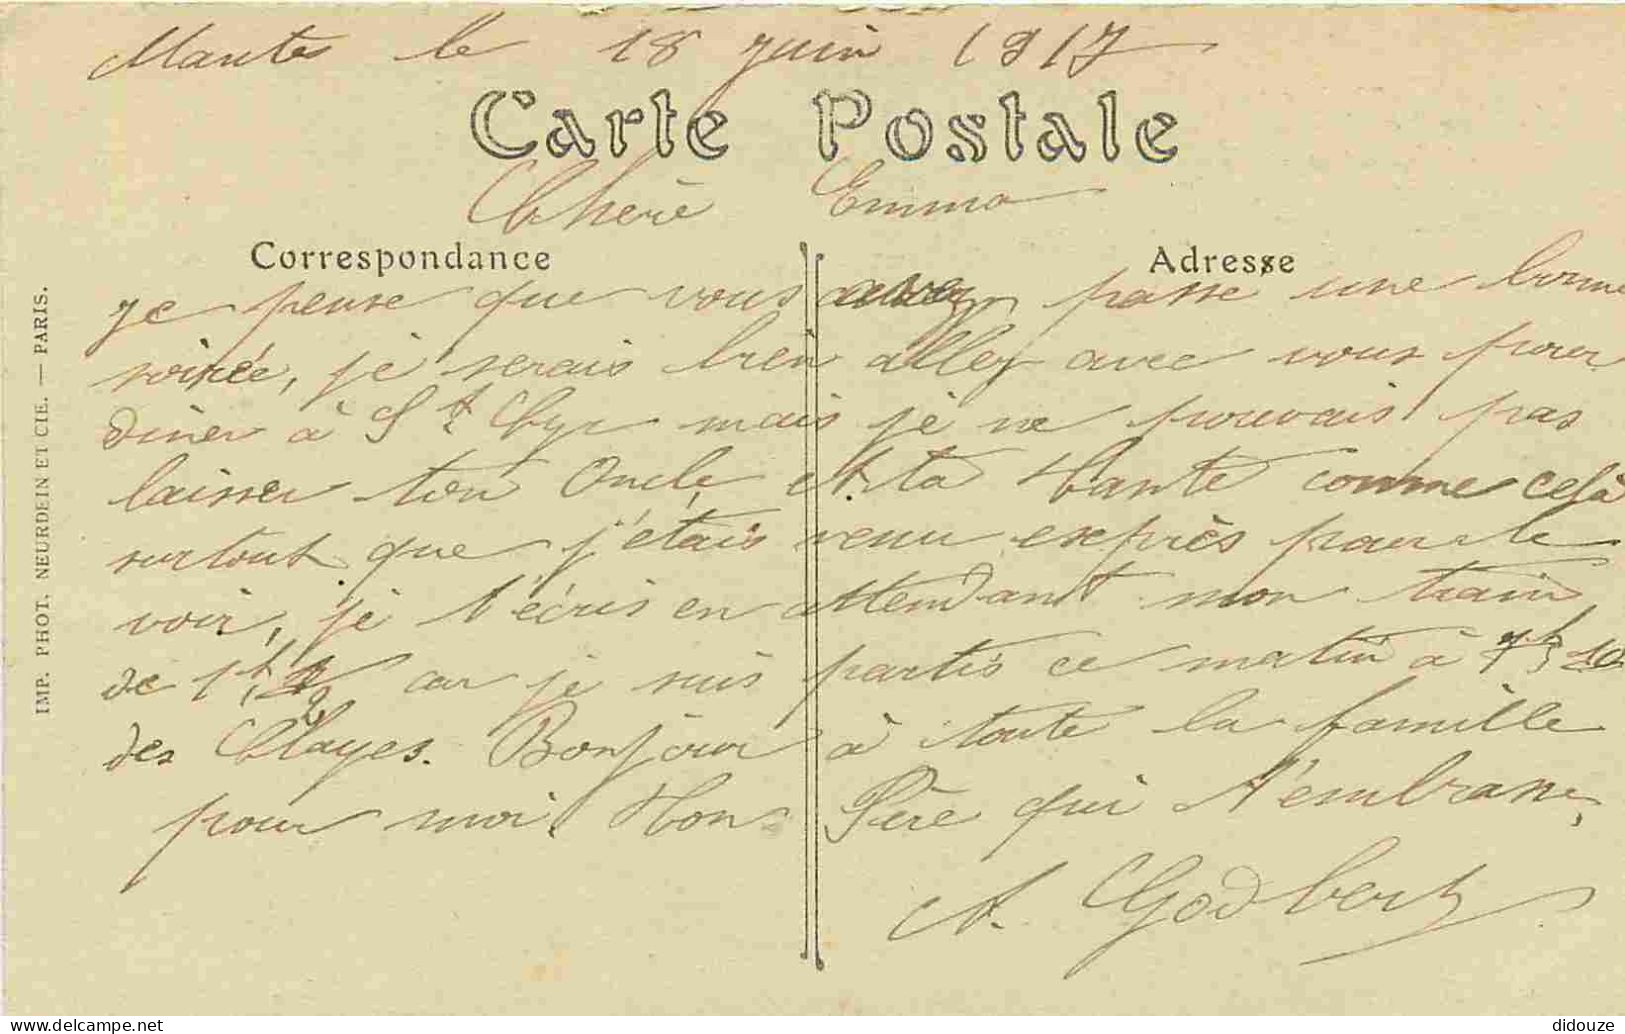 Mantes le 18 juin 1917
Carte Postale
Chère Emma
Correspondance
Adresse
je pense que vous avez passé une bonne
soirée, je serais bien aller avec vous pour
diner à St Cyr mais je ne pouvais pas
laisser ton Oncle et ta Tante comme celà
surtout que j'étais venu exprès pour le
voir, je t'écris en attendant mon train
de 1h car je suis partis ce matin à 7h 10
des Clayes. Bonjour à toute la famille
pour moi. Ton Père qui t'embrasse,
A. Godbert
IMP. PHOT. NEURDEIN ET CIE. — PARIS.
didouze
delcampe.net